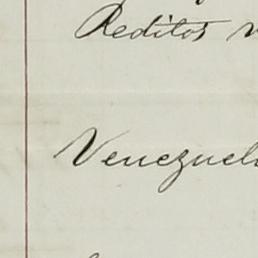 Reditos
Venezuel